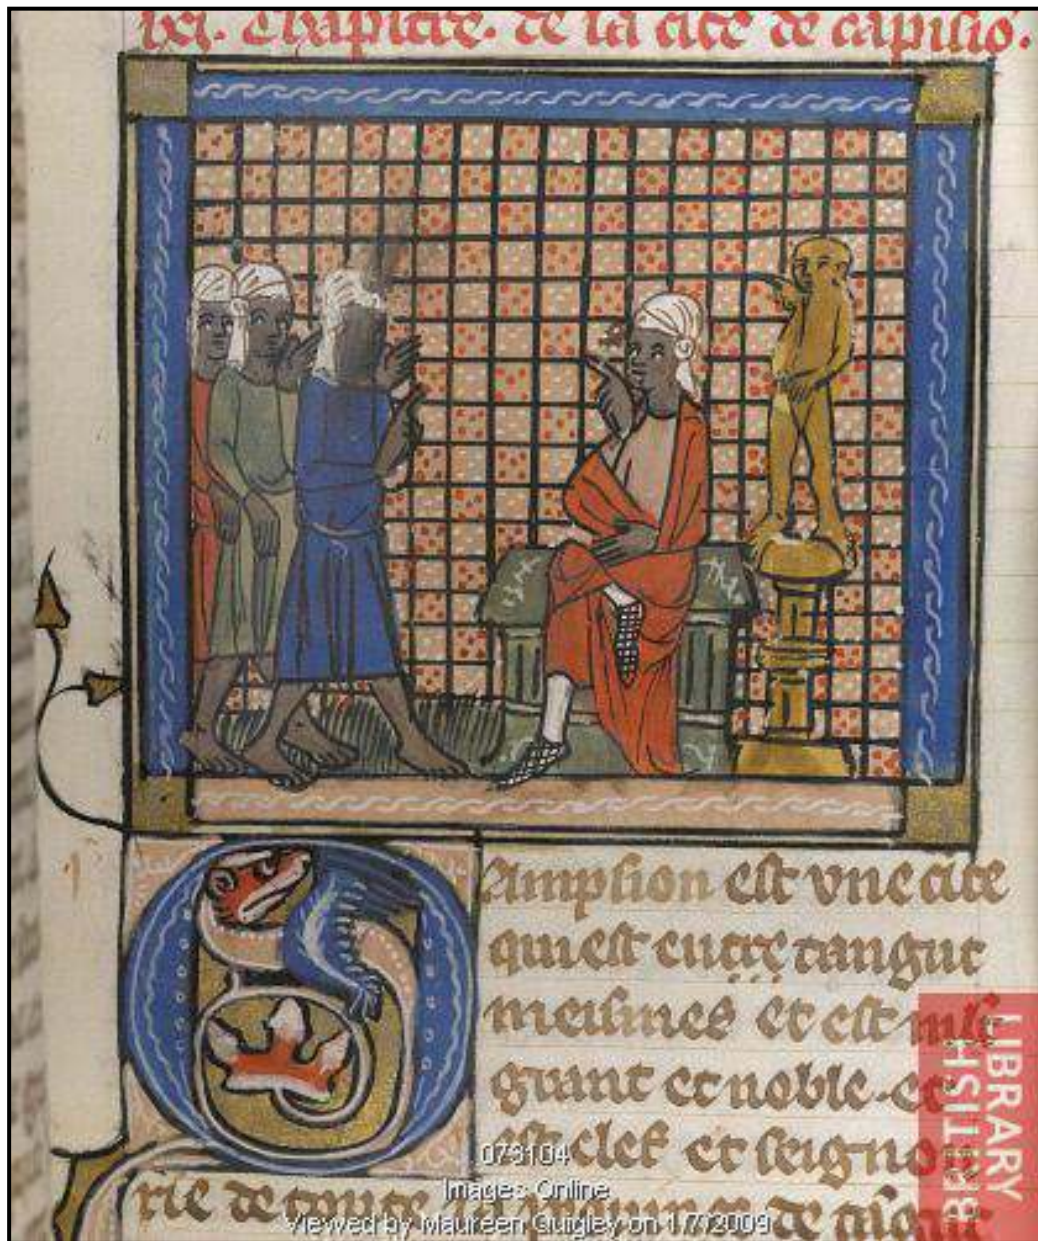 lxi. Chapitre. de la cite de capision.
Campsion est vne cite
qui est entre tangut
meismes et est mlt
grant et noble. et
est clef et seigno
rie de toute la prouince de
073104
Images Online
Viewed by Maureen Quigley on 1/7/2009
BRITISH
LIBRARY